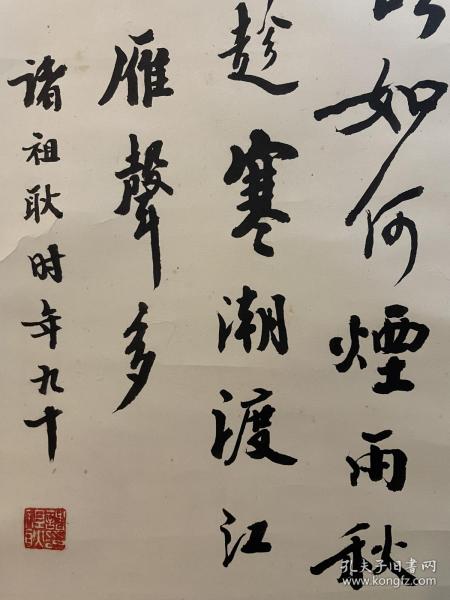 如何煙雨秋
趁寒潮渡江
雁聲多
诸祖耿时年九十
孔夫子旧书网
www.kongfz.com